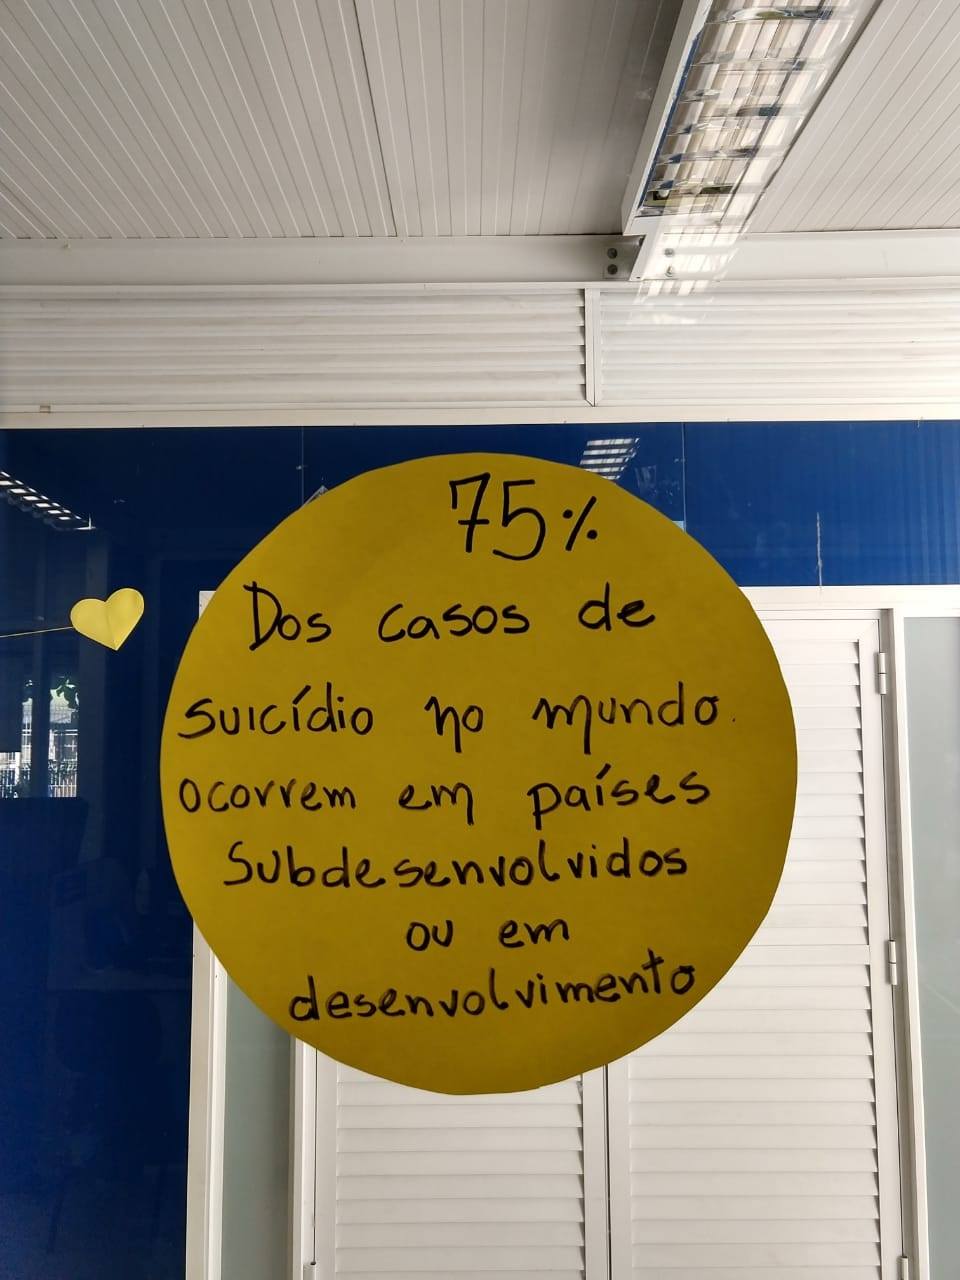 75%
Dos casos de
suicídio no mundo.
ocorrem em países
Subdesenvolvidos
ou em
desenvolvimento